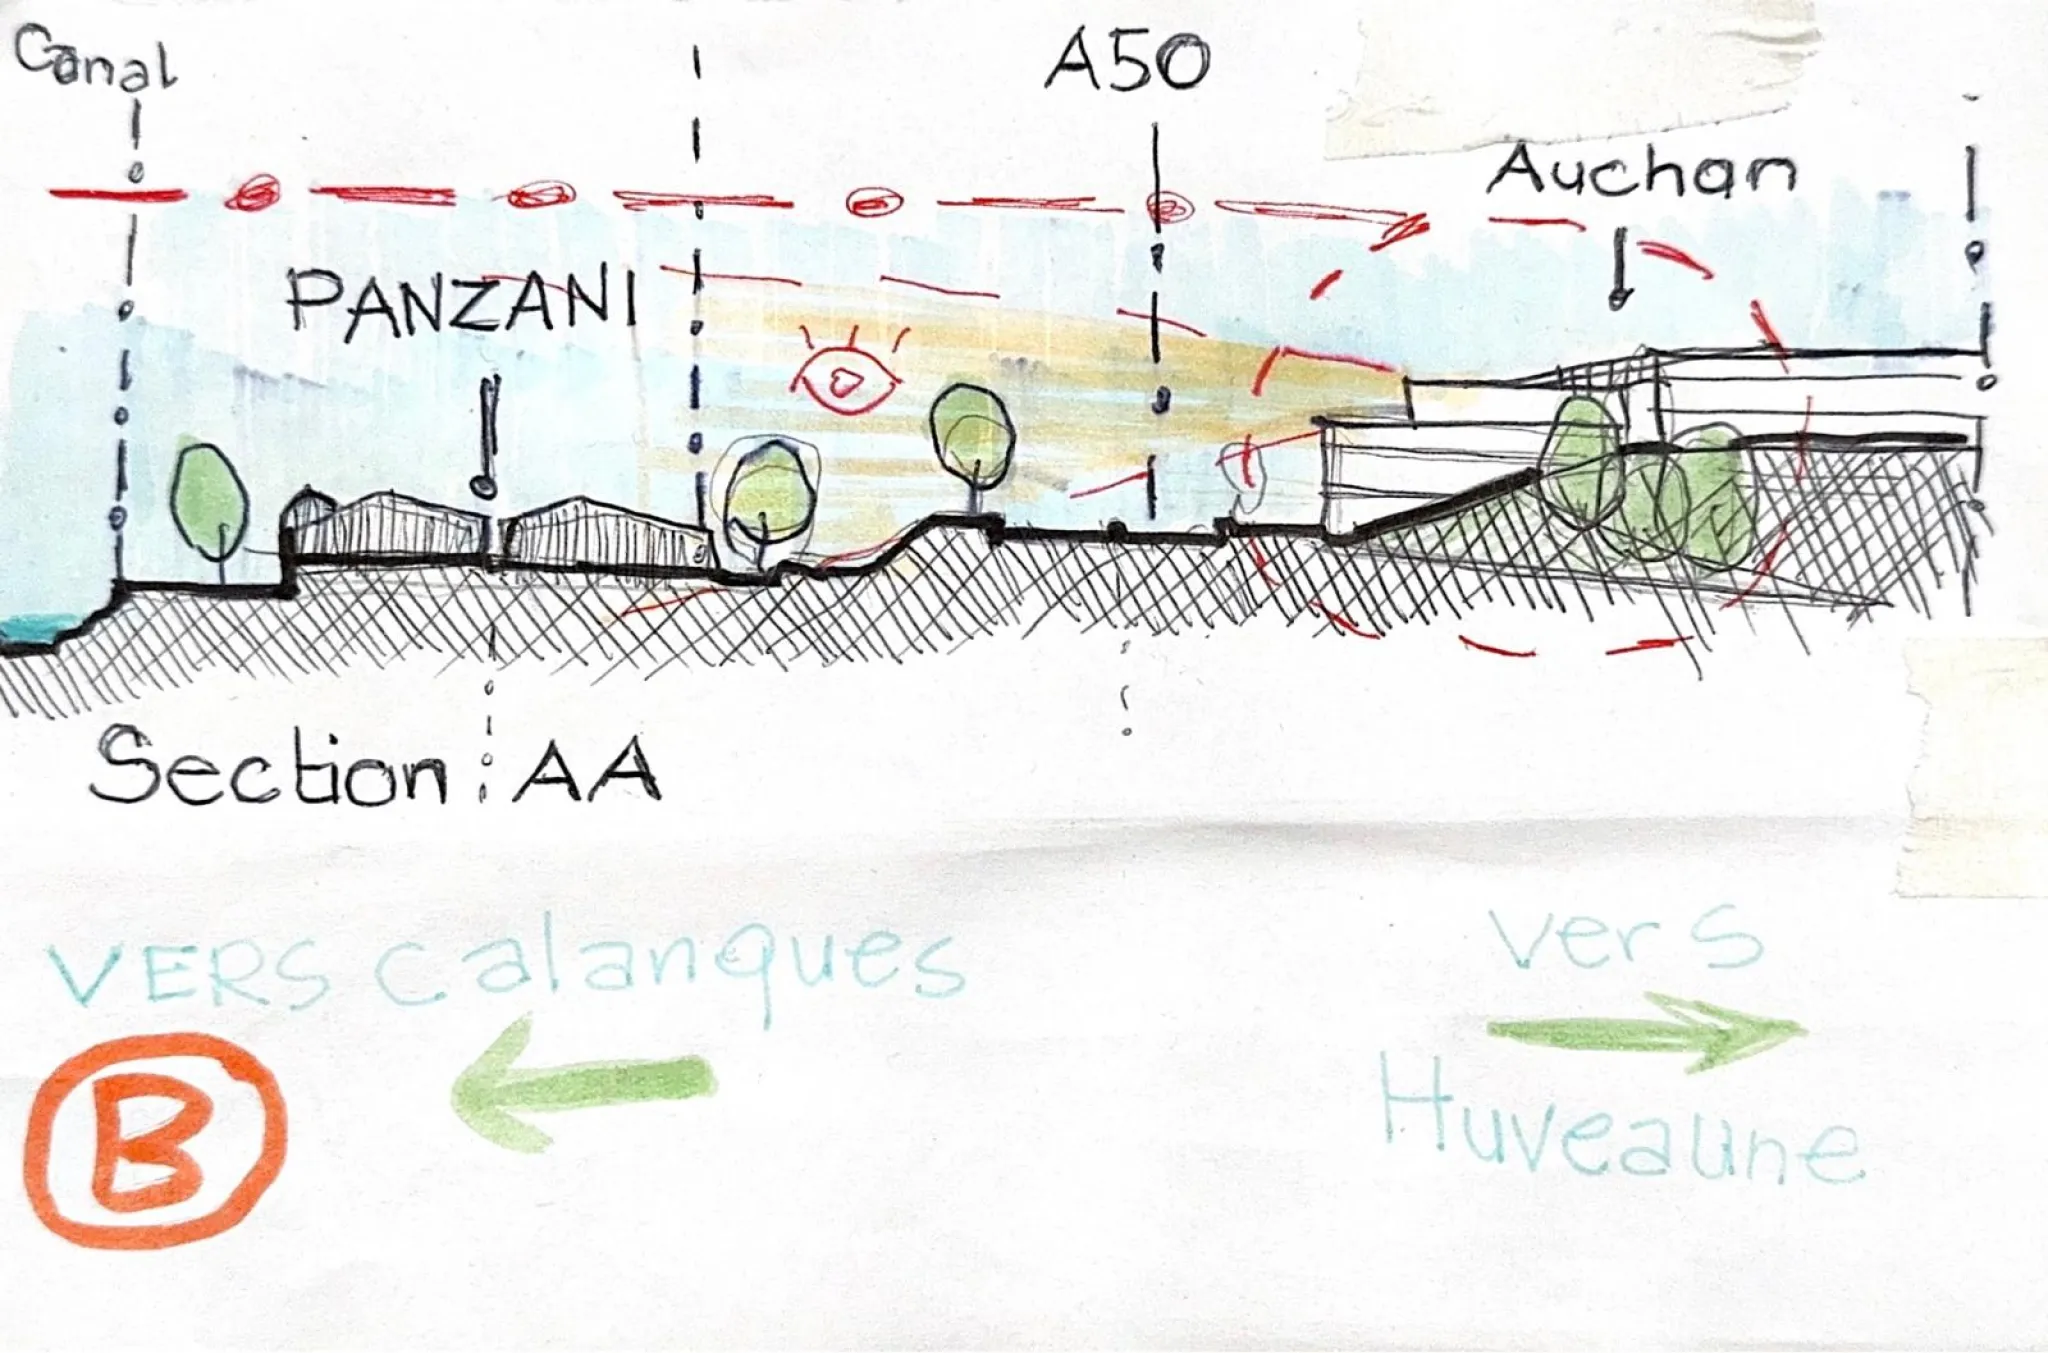 Canal
A50
Auchan
PANZANI
Section : AA
VERS Calanques
vers
Huveaune
B